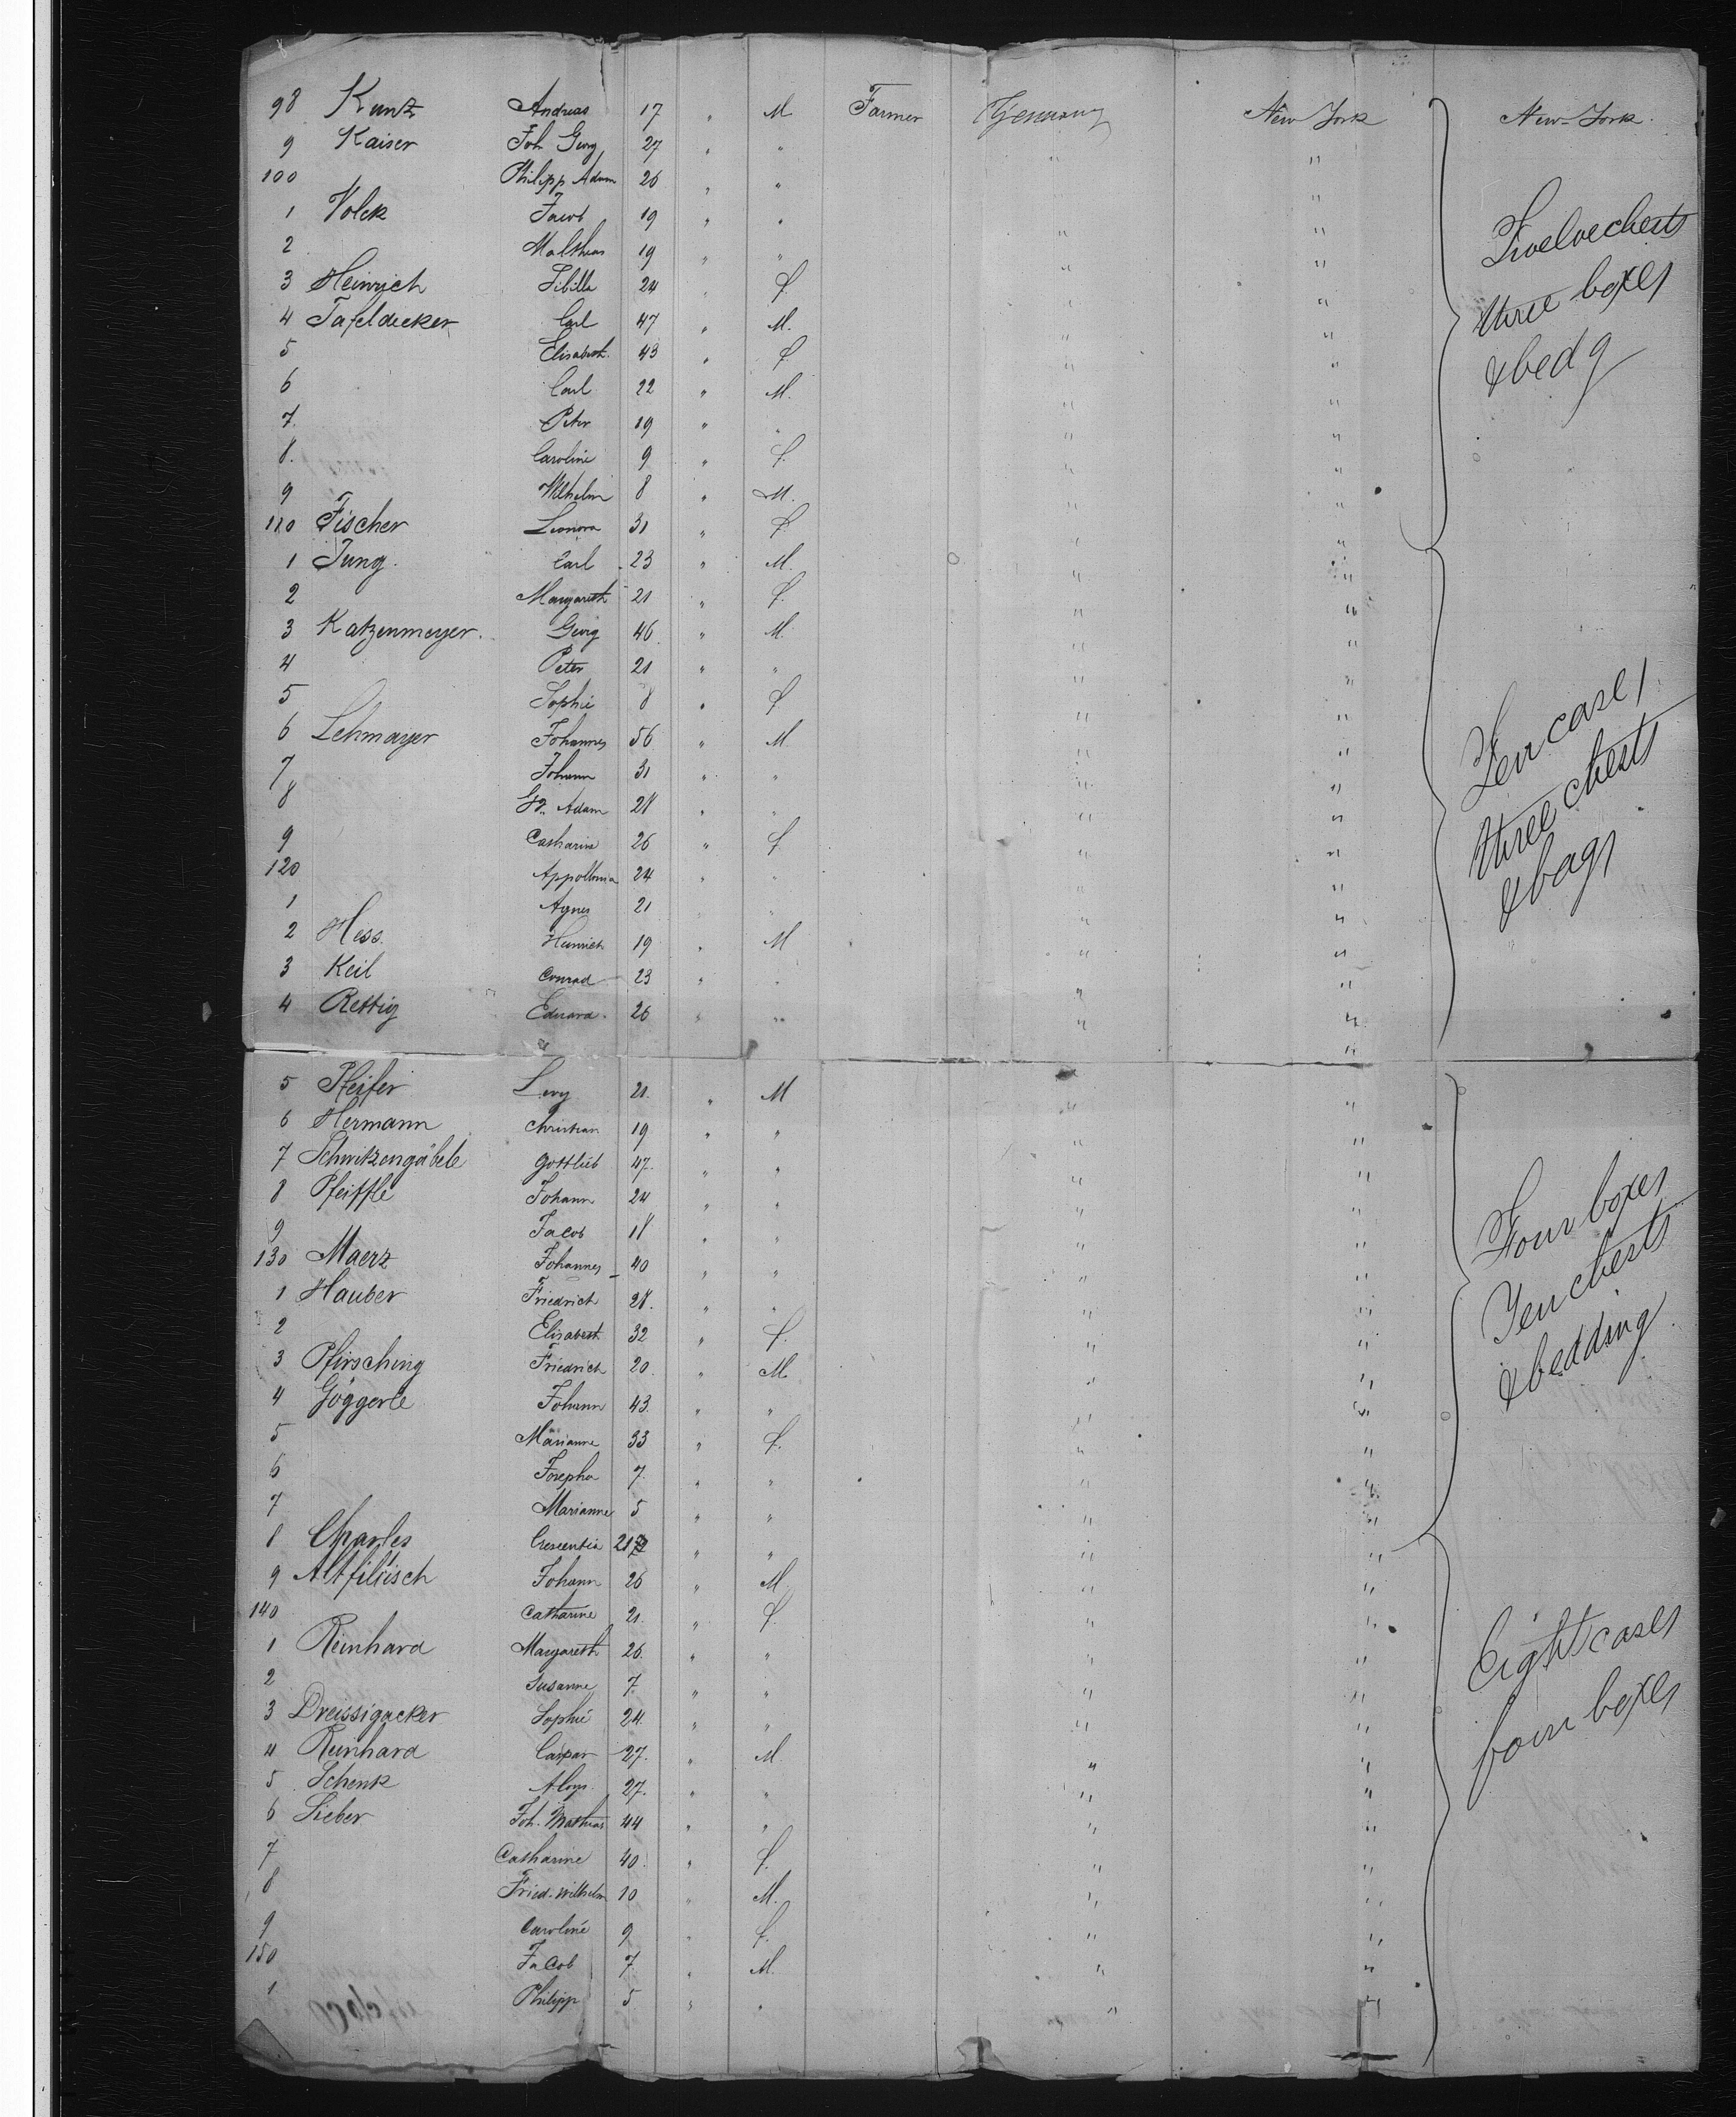 98 Kuntz Andreas 17 " M Farmer Germany New York New-York.
9 Kaiser Joh Georg 27 " " " "
100 Philipp Adam 26 " " " "
1 Volck Jacob 19 " " " "
2 Mathias 19 " " " "
3 Heinrich Sibilla 24 " f. " "
4 Tafeldecker Carl 47 " M. " "
5 Elisabeth. 43 " f. " "
6 Carl 22 " M. " "
7. Peter 19 " " " "
8. Caroline 9 " f. " "
9 Wilhelm 8 " M. " "
Twelve chests
three boxes
& bedg
110 Fischer Leonora 31 " f. " "
1 Jung. Carl 23 " M. " "
2 Margareth 21 " f. " "
3 Katzenmeyer. Georg 46 " M. " "
4 Peter 21 " " " "
5 Sophie 8 " f " "
6 Lehmayer Johannes 56 " M " "
7 Johann 31 " " " "
8 Adam 28 " " " "
9 Catharine 26 " f " "
120 Appollonia 24 " " " "
1 Agnes 21 " " " "
2 Hess. Heinrich 19 " M " "
3 Keil Conrad 23 " " " "
4 Rettig Eduard. 26 " " " "
Ten cases
three chests
& bags
5 Pfeifer Levy 21. " M " "
6 Hermann Christian 19 " " " "
7 Schwitzengäbele Gottlieb 47. " " " "
8 Pfeiffle Johann 24 " " " "
9 Jacob 18 " " " "
130 Maerz Johannes 40 " " " "
1 Hauber Friedrich 28. " " " "
2 Elisabeth 32 " f. " "
3 Pfirsching Friedrich 20. " M " "
4 Göggerle Johann 43. " " " "
5 Marianne 33 " f. " "
6 Josepha 7. " " " "
7 Marianne 5 " " " "
Four boxes
Ten chests
& bedding
8 Charles Crescentia 21 " " " "
9 Altfillisch Johann 26 " M " "
140 Catharine 21. " f. " "
1 Reinhard Margareth 26. " " " "
2 Susanne 7. " " " "
3 Dreissigacker Sophie 24. " " " "
4 Reinhard Caspar 27. " M. " "
5 Schenk Aloys. 27. " " " "
6 Sieber Joh. Mathias 44 " " " "
7 Catharine 40. " f. " "
8 Fried. Wilhelm 10 " M. " "
9 Caroline 9 " f. " "
150 Jacob 7 " M. " "
1 Philipp 5 " " " "
Eight cases
four boxes